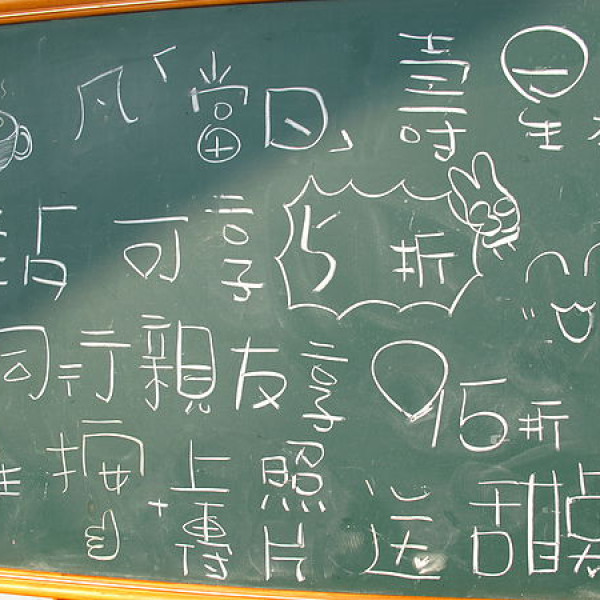 凡「當日」壽星
點可享5折
同行親友享95折
按+上傳照片送甜點